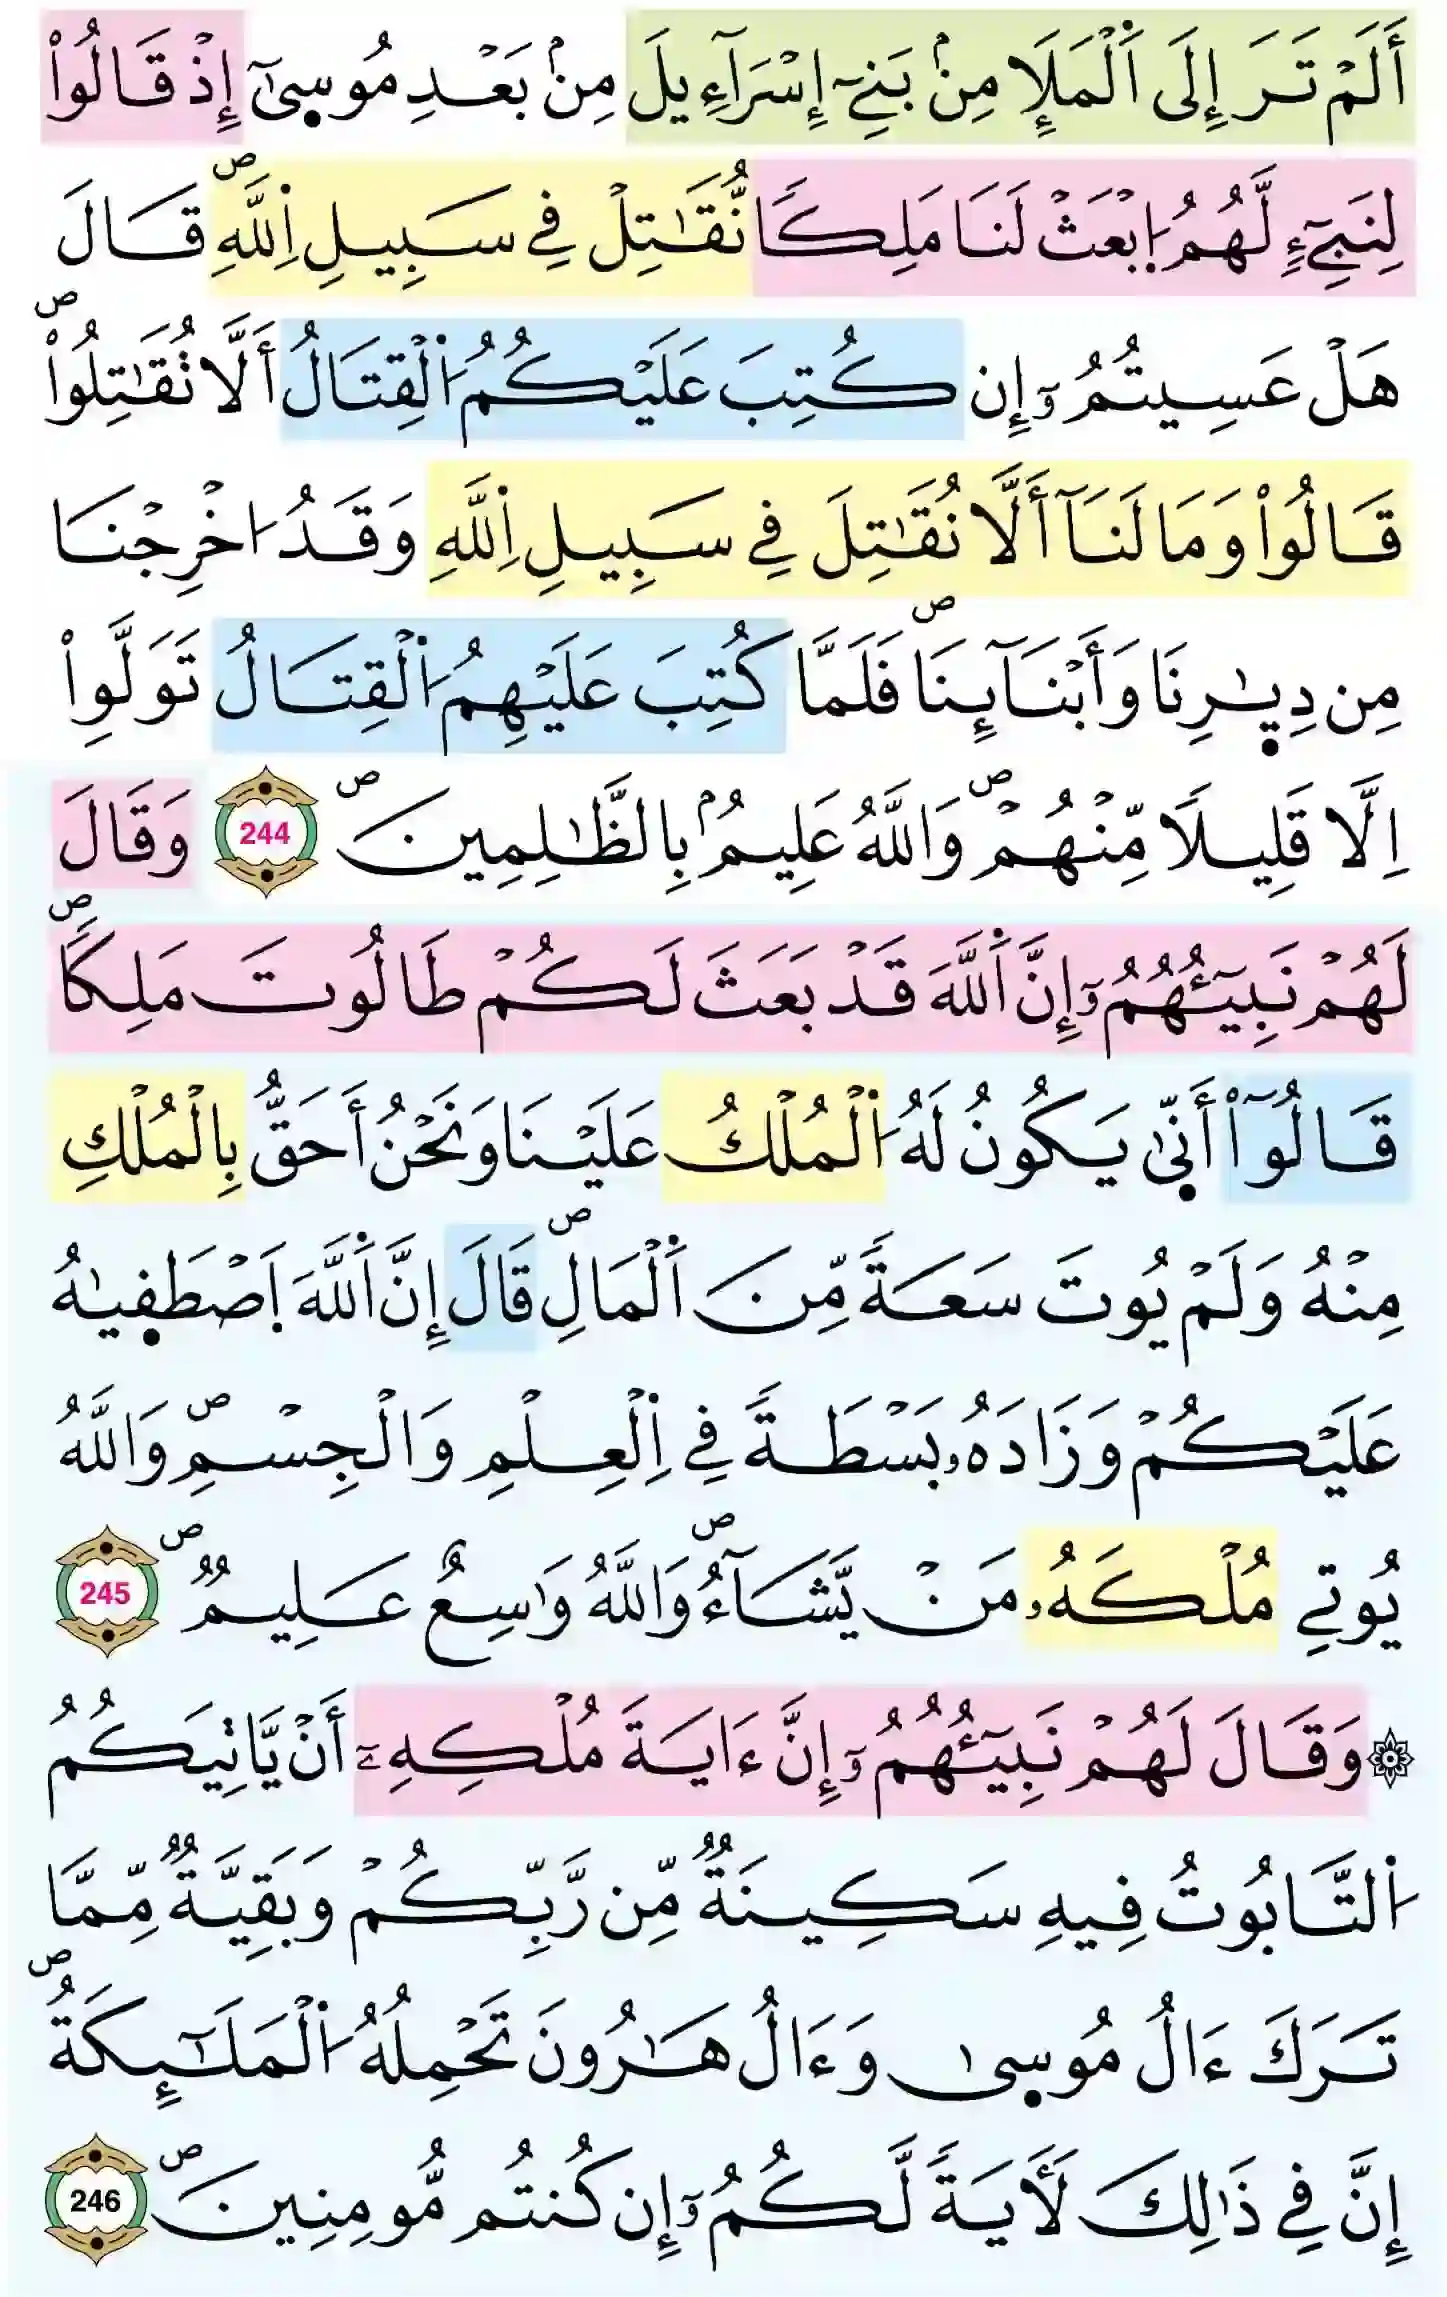 أَلَمْ تَرَ إِلَى اَ۬لْمَلَإِ مِنۢ بَنِےٓ إِسْرَآءِيلَ مِنۢ بَعْدِ مُوس۪ىٰٓ إِذْ قَالُواْ
لِنَبِےٓءٖ لَّهُمُ اُ۪بْعَثْ لَنَا مَلِكاٗ نُّقَٰتِلْ فِے سَبِيلِ اِ۬للَّهِۖ قَالَ
هَلْ عَسِيتُمُۥٓ إِن كُتِبَ عَلَيْكُمُ اُ۬لْقِتَالُ أَلَّا تُقَٰتِلُواْۖ
قَالُواْ وَمَا لَنَآ أَلَّا نُقَٰتِلَ فِے سَبِيلِ اِ۬للَّهِ وَقَدُ ا۟خْرِجْنَا
مِن دِيٰ۪رِنَا وَأَبْنَآئِنَاۖ فَلَمَّا كُتِبَ عَلَيْهِمُ اُ۬لْقِتَالُ تَوَلَّوِاْ
اِلَّا قَلِيلاٗ مِّنْهُمْۖ وَاللَّهُ عَلِيمُۢ بِالظَّٰلِمِينَۖ 244 وَقَالَ
لَهُمْ نَبِيٓـُٔهُمُۥٓ إِنَّ اَ۬للَّهَ قَدْ بَعَثَ لَكُمْ طَالُوتَ مَلِكاٗۖ
قَالُوٓاْ أَنّ۪ىٰ يَكُونُ لَهُ اُ۬لْمُلْكُ عَلَيْنَا وَنَحْنُ أَحَقُّ بِالْمُلْكِ
مِنْهُ وَلَمْ يُوتَ سَعَةٗ مِّنَ اَ۬لْمَالِۖ قَالَ إِنَّ اَ۬للَّهَ اَ۪صْطَف۪يٰهُ
عَلَيْكُمْ وَزَادَهُۥ بَسْطَةٗ فِے اِ۬لْعِلْمِ وَالْجِسْمِۖ وَاللَّهُ
يُوتِے مُلْكَهُۥ مَنْ يَّشَآءُۖ وَاللَّهُ وَٰسِعٌ عَلِيمٞۖ 245
۞ وَقَالَ لَهُمْ نَبِيٓـُٔهُمُۥٓ إِنَّ ءَايَةَ مُلْكِهِۦٓ أَنْ يَّاتِيَكُمُ
اُ۬لتَّابُوتُ فِيهِ سَكِينَةٞ مِّن رَّبِّكُمْ وَبَقِيَّةٞ مِّمَّا
تَرَكَ ءَالُ مُوس۪ىٰ وَءَالُ هَٰرُونَ تَحْمِلُهُ اُ۬لْمَلَٰٓئِكَةُۖ
إِنَّ فِے ذَٰلِكَ لَأٓيَةٗ لَّكُمُۥٓ إِن كُنتُم مُّومِنِينَۖ 246